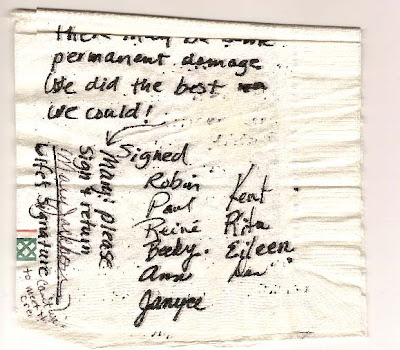 there may be some
permanant damage
We did the best
we could!
Signed
Robin
Paul
Reiné
Becky
Ann
Janyce
Kent
Rita
Eileen
Mami please
sign & return
Wife's Signature